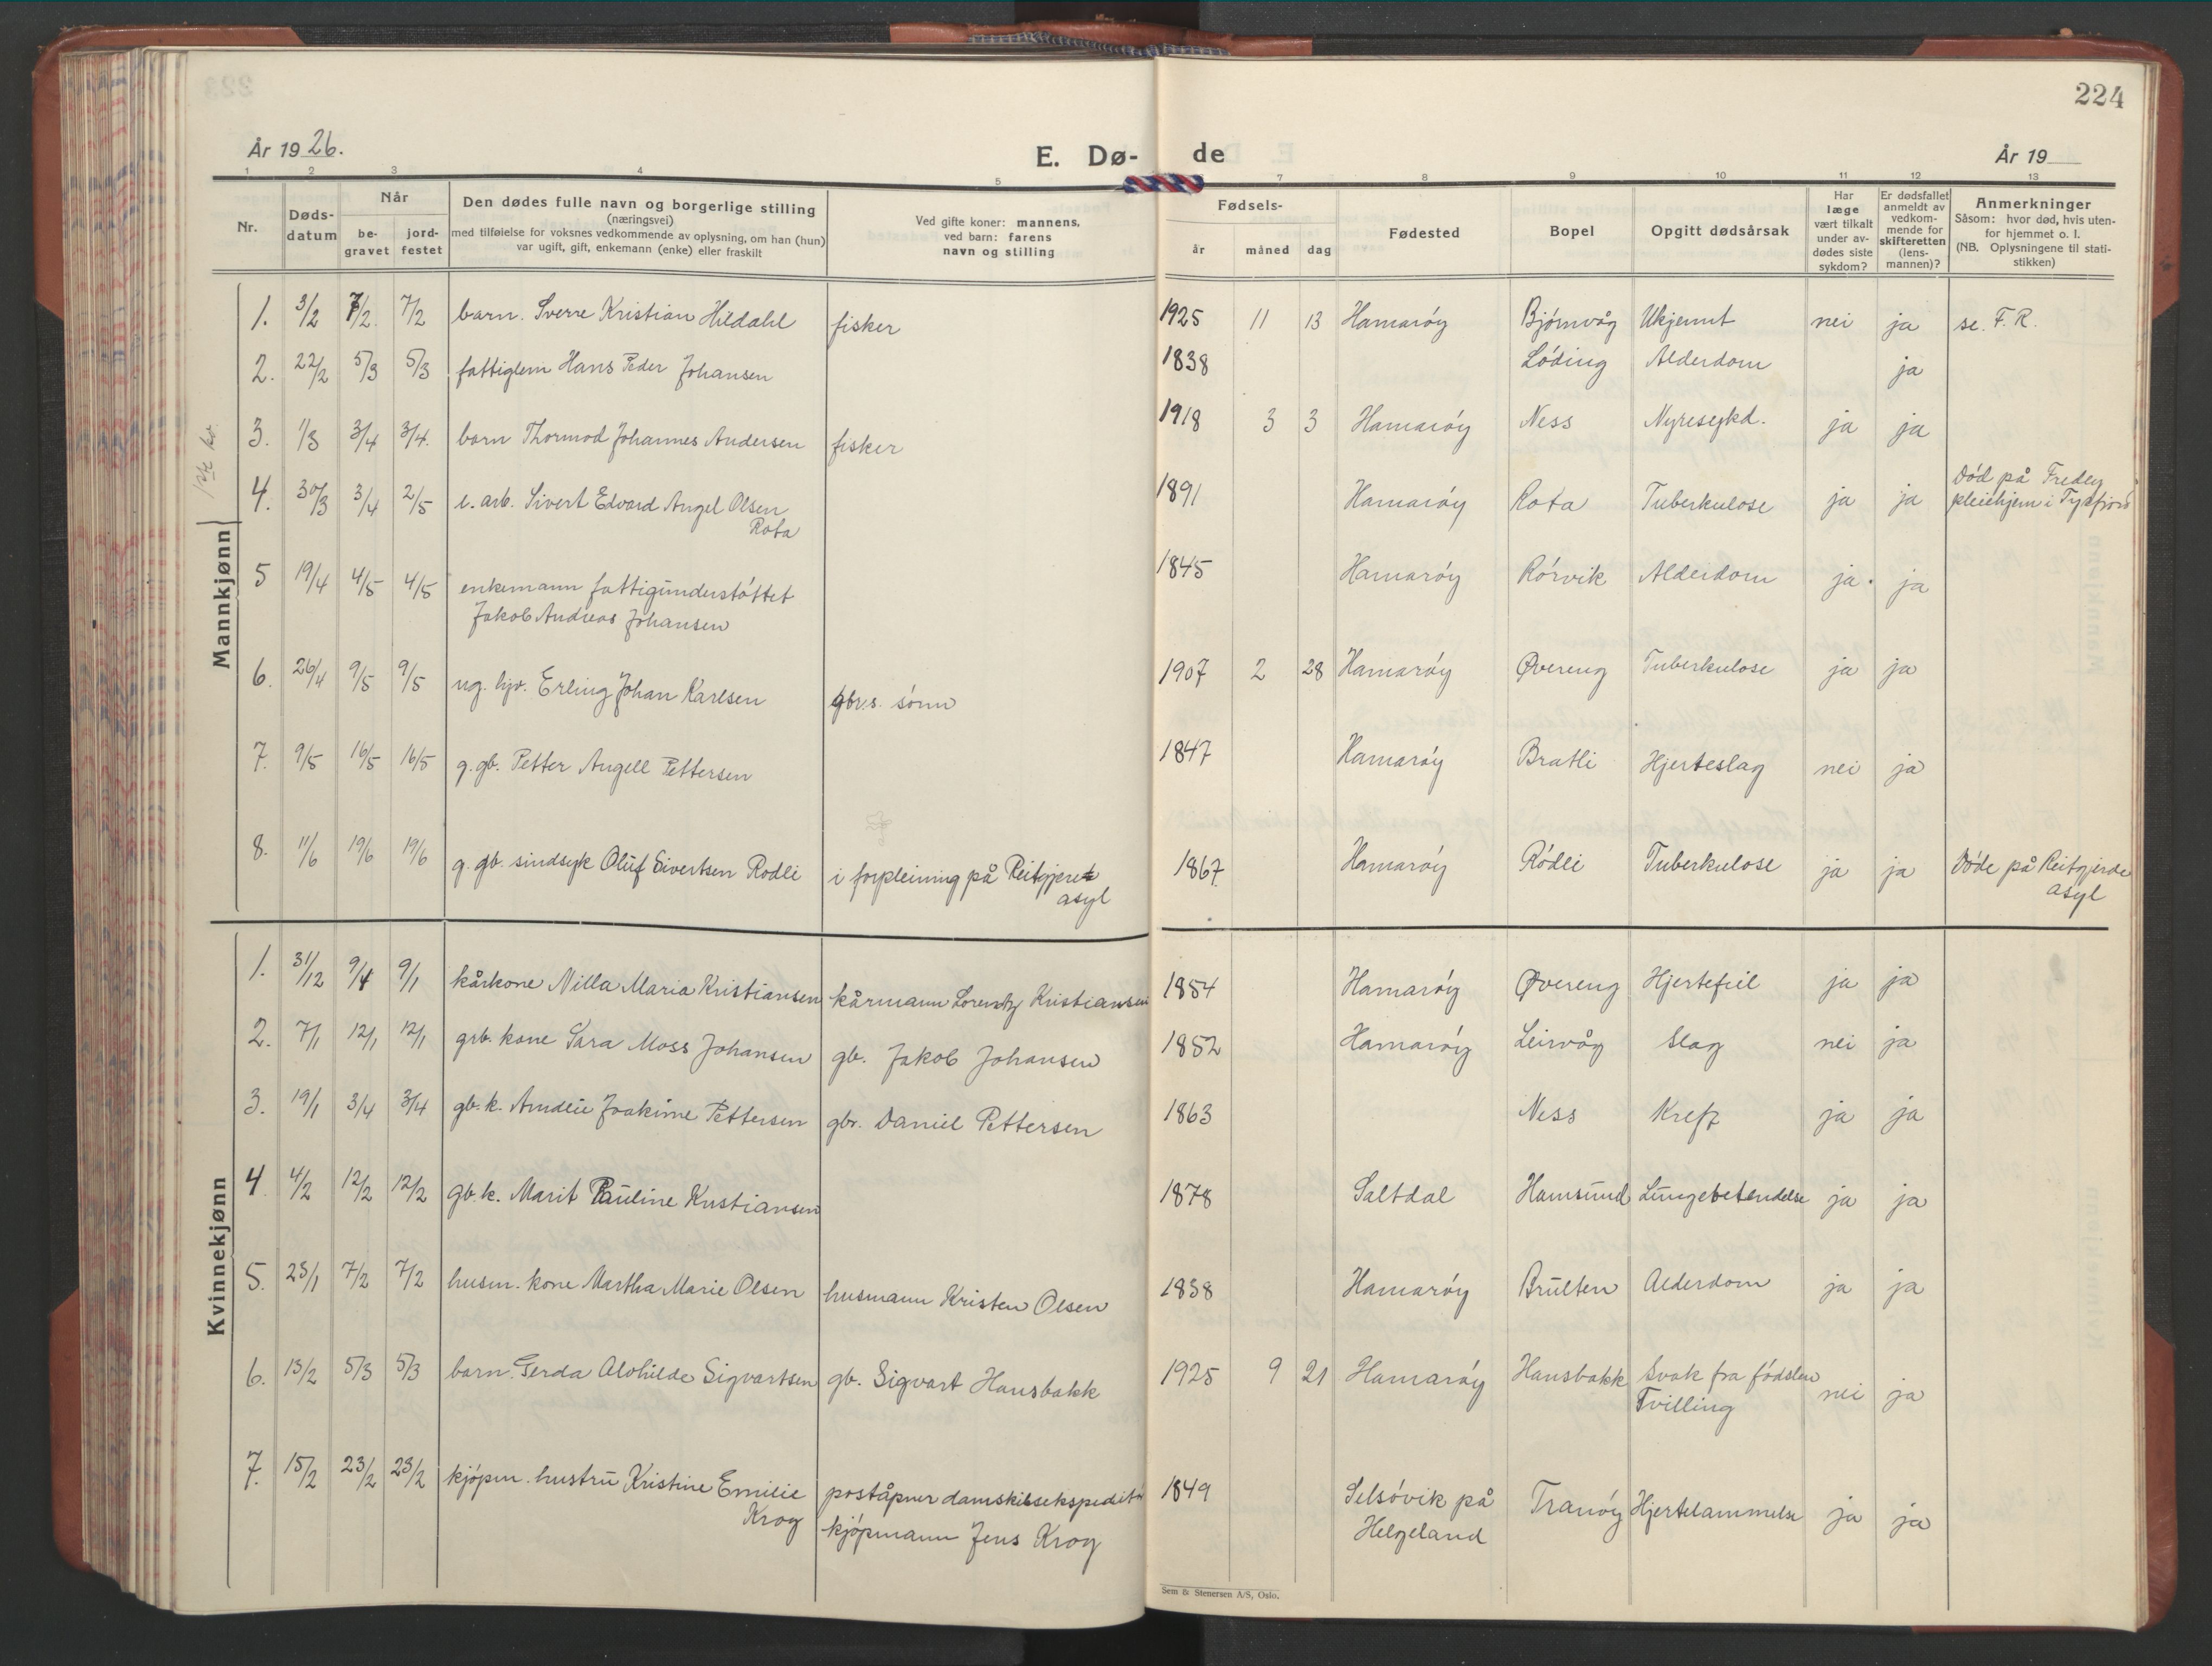 224
År 19 26.
E. Dø- de
År 19
1 2 3 4 5 7 8 9 10 11 12 13
Nr.
Døds-
datum
Når
be-
gravet
jord-
festet
Den dødes fulle navn og borgerlige stilling
(næringsvei)
med tilføielse for voksnes vedkommende av oplysning, om han (hun)
var ugift, gift, enkemann (enke) eller fraskilt
Ved gifte koner: mannens,
ved barn: farens
navn og stilling
Fødsels-
år måned dag
Fødested
Bopel
Opgitt dødsårsak
Har
læge
vært tilkalt
under av-
dødes siste
sykdom?
Er dødsfallet
anmeldt av
vedkom-
mende for
skifteretten
(lens-
mannen)?
Anmerkninger
Såsom: hvor død, hvis uten-
for hjemmet o. l.
(NB. Oplysningene til stati-
stikken)
Mannkjønn
1. 3/2 7/2. 7/2 barn. Sverre Kristian Hildahl fisker 1925 11 13 Hamarøy Bjørnvåg Ukjennt nei ja se. F. R.
2. 22/2 5/3 5/3 fattiglem Hans Peder Johansen 1838 Løding Alderdom ja
3. 1/3 3/4 3/4. barn Thormod Johannes Andersen fisker 1918 3 3 Hamarøy Ness Nyresykd. ja ja
4. 30/3 3/4 2/5 e. arb. Sivert Edvard Angel Olsen 1891 Hamarøy Rota Tuberkulose ja ja Død på Fredly
Rota pleiehjem i Tysfjord
5 19/4 4/5 4/5 enkemann fattigunderstøttet 1845 Hamarøy Rørvik Alderdom ja. ja
Jakob Andreas Johansen
6. 26/4 9/5 9/5 ug. hjv. Erling Johan Karlsen gbr.s. sønn 1907 2 28 Hamarøy Øvereng Tuberkulose ja ja
7. 9/5 16/5 16/5 g. gb. Petter Angell Pettersen 1847 Hamarøy Bratli Hjerteslag nei ja
8. 11/6 19/6 19/6 g. gb. sindsyk Oluf Sivertsen Rodli i forpleining på Reitgjeret 1867. Hamarøy Rødli Tuberkulose ja ja Døde på Reitgjerde
asyl asyl
Kvinnekjønn
1. 31/12 9/1 9/1 kårkone Nilla Maria Kristiansen kårmann Lorentz Kristiansen 1854 Hamarøy Øvereng Hjertefeil ja ja
2. 7/1 12/1 12/1 grb. kone Sara Moss Johansen gb. Jakob Johansen 1852 Hamarøy Leirvåg Slag nei ja
3. 19/1 3/4 3/4 gb. k. Amdlie Joakime Pettersen gbr. Daniel Pettersen 1863 Ness Kreft ja ja
4 4/2 12/2 12/2 gb. k. Marit Pauline Kristiansen 1878 Saltdal Hamsund Lungebetendelse ja ja
5. 23/1 7/2 7/2 husm. kone Martha Marie Olsen husmann Kristen Olsen 1838 Hamarøy Brulten Alderdom ja ja
6. 13/2 5/3 5/3 barn. Gerda Alvhilde Sigvartsen gb. Sigvart Hansbakk 1925 9 21 Hamarøy Hansbakk Svak fra fødslen nei ja
Tvilling
7. 15/2 23/2 23/2 kjøpm. hustru Kristine Emilie poståpner damskibsekspeditør 1849 Selsøvik på Tranøy Hjertelammelse ja ja
Krog kjøpmann Jens Krog Helgeland
Sem & Stenersen A/S, Oslo.